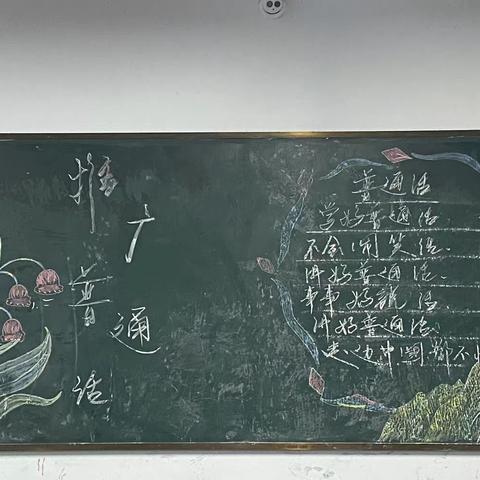 推广普通话
普通话
学好普通话、
不会闹笑话、
讲好普通话、
事事好说话
讲好普通话、
走边中国都不